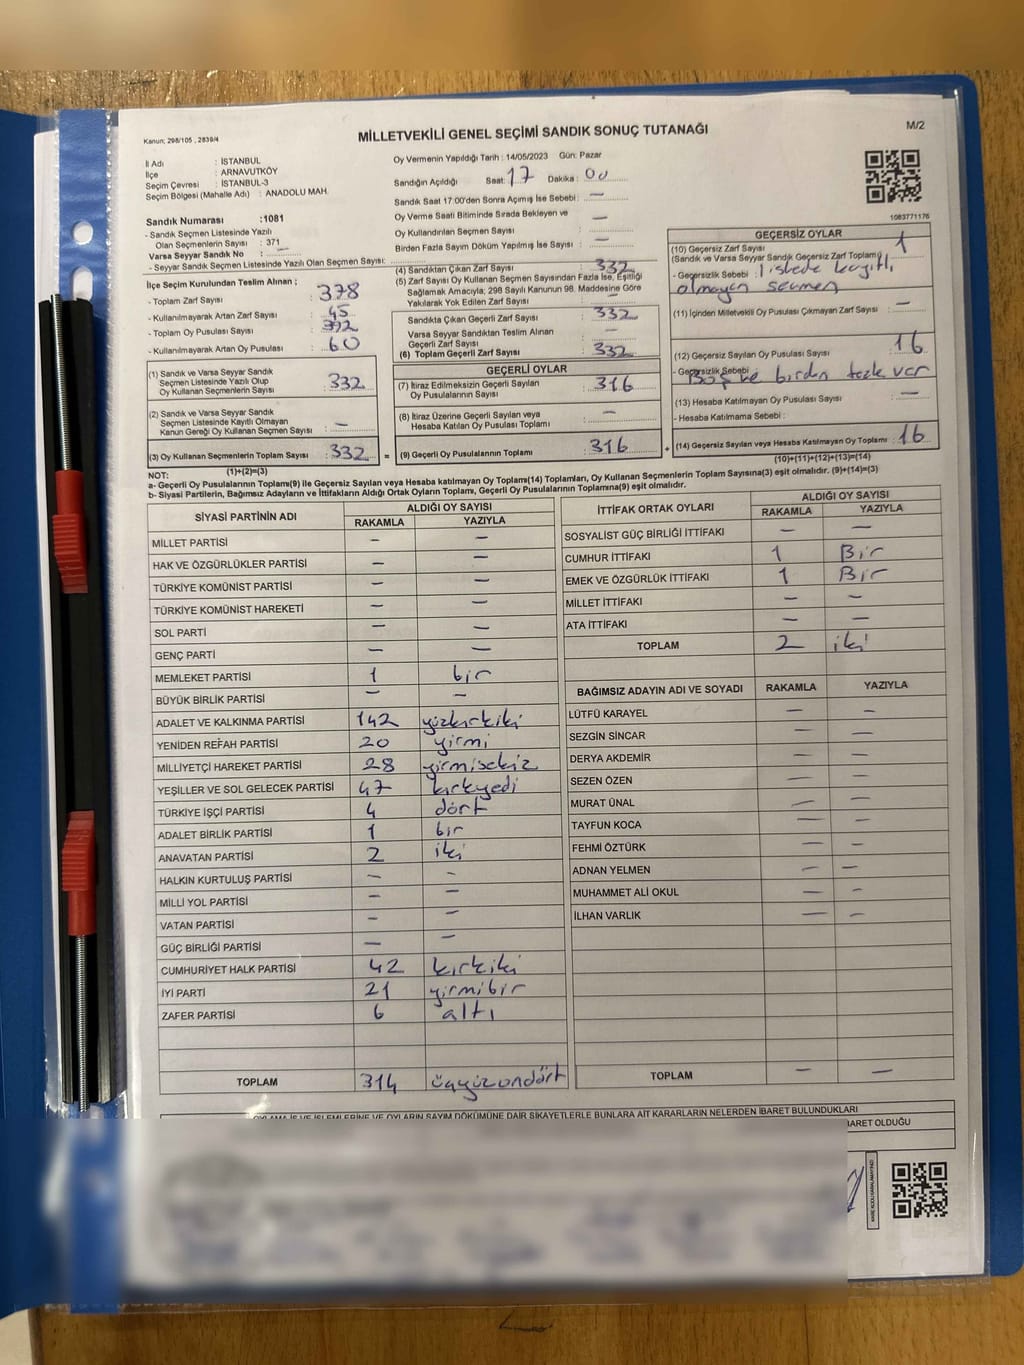 Kanun; 298/105 , 2839/4
MİLLETVEKİLİ GENEL SEÇİMİ SANDIK SONUÇ TUTANAĞI
M/2
İl Adı : İSTANBUL
İlçe : ARNAVUTKÖY
Seçim Çevresi : İSTANBUL-3
Seçim Bölgesi (Mahalle Adı) : ANADOLU MAH.
Oy Vermenin Yapıldığı Tarih : 14/05/2023 Gün: Pazar
Sandığın Açıldığı Saat: 17 Dakika : 00
Sandık Saat 17:00'den Sonra Açılmış İse Sebebi : —
Oy Verme Saati Bitiminde Sırada Bekleyen ve
Oy Kullandırılan Seçmen Sayısı : —
Birden Fazla Sayım Döküm Yapılmış İse Sayısı : —
1083771176
Sandık Numarası :1081
- Sandık Seçmen Listesinde Yazılı
Olan Seçmenlerin Sayısı : 371
Varsa Seyyar Sandık No : —
- Seyyar Sandık Seçmen Listesinde Yazılı Olan Seçmen Sayısı:
İlçe Seçim Kurulundan Teslim Alınan ;
- Toplam Zarf Sayısı : 378
- Kullanılmayarak Artan Zarf Sayısı : 45
- Toplam Oy Pusulası Sayısı : 392
- Kullanılmayarak Artan Oy Pusulası : 60
(1) Sandık ve Varsa Seyyar Sandık
Seçmen Listesinde Yazılı Olup
Oy Kullanan Seçmenlerin Sayısı : 332
(2) Sandık ve Varsa Seyyar Sandık
Seçmen Listesinde Kayıtlı Olmayan
Kanun Gereği Oy Kullanan Seçmen Sayısı : —
(3) Oy Kullanan Seçmenlerin Toplam Sayısı : 332
(1)+(2)=(3)
(4) Sandıktan Çıkan Zarf Sayısı : 332
(5) Zarf Sayısı Oy Kullanan Seçmen Sayısından Fazla İse, Eşitliği
Sağlamak Amacıyla, 298 Sayılı Kanunun 98. Maddesine Göre
Yakılarak Yok Edilen Zarf Sayısı : —
Sandıkta Çıkan Geçerli Zarf Sayısı : 332
Varsa Seyyar Sandıktan Teslim Alınan
Geçerli Zarf Sayısı : —
(6) Toplam Geçerli Zarf Sayısı : 332
GEÇERLİ OYLAR
(7) İtiraz Edilmeksizin Geçerli Sayılan
Oy Pusulasının Sayısı : 316
(8) İtiraz Üzerine Geçerli Sayılan veya
Hesaba Katılan Oy Pusulası Toplamı : —
= (9) Geçerli Oy Pusulalarının Toplamı : 316
GEÇERSİZ OYLAR
(10) Geçersiz Zarf Sayısı
(Sandık ve Varsa Seyyar Sandık Geçersiz Zarf Toplamı) : 1
- Geçersizlik Sebebi : listede kayıtlı
olmayan seçmen
(11) İçinden Milletvekili Oy Pusulası Çıkmayan Zarf Sayısı : —
(12) Geçersiz Sayılan Oy Pusulası Sayısı : 16
- Geçersizlik Sebebi : Boş ve birden fazla var
(13) Hesaba Katılmayan Oy Pusulası Sayısı : —
- Hesaba Katılmama Sebebi :
+ (14) Geçersiz Sayılan veya Hesaba Katılmayan Oy Toplamı : 16
(10)+(11)+(12)+(13)=(14)
NOT:
a- Geçerli Oy Pusulalarının Toplamı(9) ile Geçersiz Sayılan veya Hesaba katılmayan Oy Toplam(14) Toplamları, Oy Kullanan Seçmenlerin Toplam Sayısına(3) eşit olmalıdır. (9)+(14)=(3)
b- Siyasi Partilerin, Bağımsız Adayların ve İttifakların Aldığı Ortak Oyların Toplamı, Geçerli Oy Pusulalarının Toplamına(9) eşit olmalıdır.
SİYASİ PARTİNİN ADI ALDIĞI OY SAYISI
RAKAMLA YAZIYLA
MİLLET PARTİSİ — —
HAK VE ÖZGÜRLÜKLER PARTİSİ — —
TÜRKİYE KOMÜNİST PARTİSİ — —
TÜRKİYE KOMÜNİST HAREKETİ — —
SOL PARTİ — —
GENÇ PARTİ — —
MEMLEKET PARTİSİ 1 bir
BÜYÜK BİRLİK PARTİSİ — —
ADALET VE KALKINMA PARTİSİ 142 yüzkırkiki
YENİDEN REFAH PARTİSİ 20 yirmi
MİLLİYETÇİ HAREKET PARTİSİ 28 yirmisekiz
YEŞİLLER VE SOL GELECEK PARTİSİ 47 kırkyedi
TÜRKİYE İŞÇİ PARTİSİ 4 dört
ADALET BİRLİK PARTİSİ 1 bir
ANAVATAN PARTİSİ 2 iki
HALKIN KURTULUŞ PARTİSİ — —
MİLLİ YOL PARTİSİ — —
VATAN PARTİSİ — —
GÜÇ BİRLİĞİ PARTİSİ — —
CUMHURİYET HALK PARTİSİ 42 kırkiki
İYİ PARTİ 21 yirmibir
ZAFER PARTİSİ 6 altı
TOPLAM 314 üçyüzondört
İTTİFAK ORTAK OYLARI ALDIĞI OY SAYISI
RAKAMLA YAZIYLA
SOSYALİST GÜÇ BİRLİĞİ İTTİFAKI — —
CUMHUR İTTİFAKI 1 Bir
EMEK VE ÖZGÜRLÜK İTTİFAKI 1 Bir
MİLLET İTTİFAKI — —
ATA İTTİFAKI — —
TOPLAM 2 iki
BAĞIMSIZ ADAYIN ADI VE SOYADI RAKAMLA YAZIYLA
LÜTFÜ KARAYEL — —
SEZGİN SİNCAR — —
DERYA AKDEMİR — —
SEZEN ÖZEN — —
MURAT ÜNAL — —
TAYFUN KOCA — —
FEHMİ ÖZTÜRK — —
ADNAN YELMEN — —
MUHAMMET ALİ OKUL — —
İLHAN VARLIK — —
TOPLAM — —
OYLAMA İŞ VE İŞLEMLERİNE VE OYLARIN SAYIM DÖKÜMÜNE DAİR ŞİKAYETLERLE BUNLARA AİT KARARLARIN NELERDEN İBARET BULUNDUKLARI
İBARET OLDUĞU